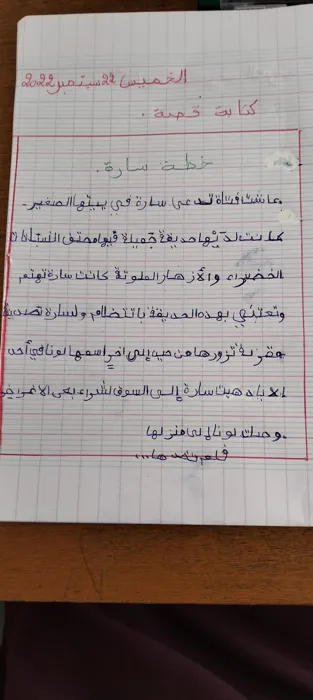 الخميس 22 سبتمبر 2022
كتابة قصة .
خطة سارة .
عاشت فتاة تدعى سارة في بيتها الصغير .
كانت لديها حديقة جميلة فيها مختلف النباتات
الخضراء والأزهار الملونة كانت سارة تهتم
وتعتني بهذه الحديقة بانتظام ولسارة صديقة
مقربة تزورها من حين إلى آخر اسمها لونا في أحد
الايام ذهبت سارة إلى السوق لشراء بعض الاغراض
وصلت لونا إلى منزلها
فلم تجدها ...